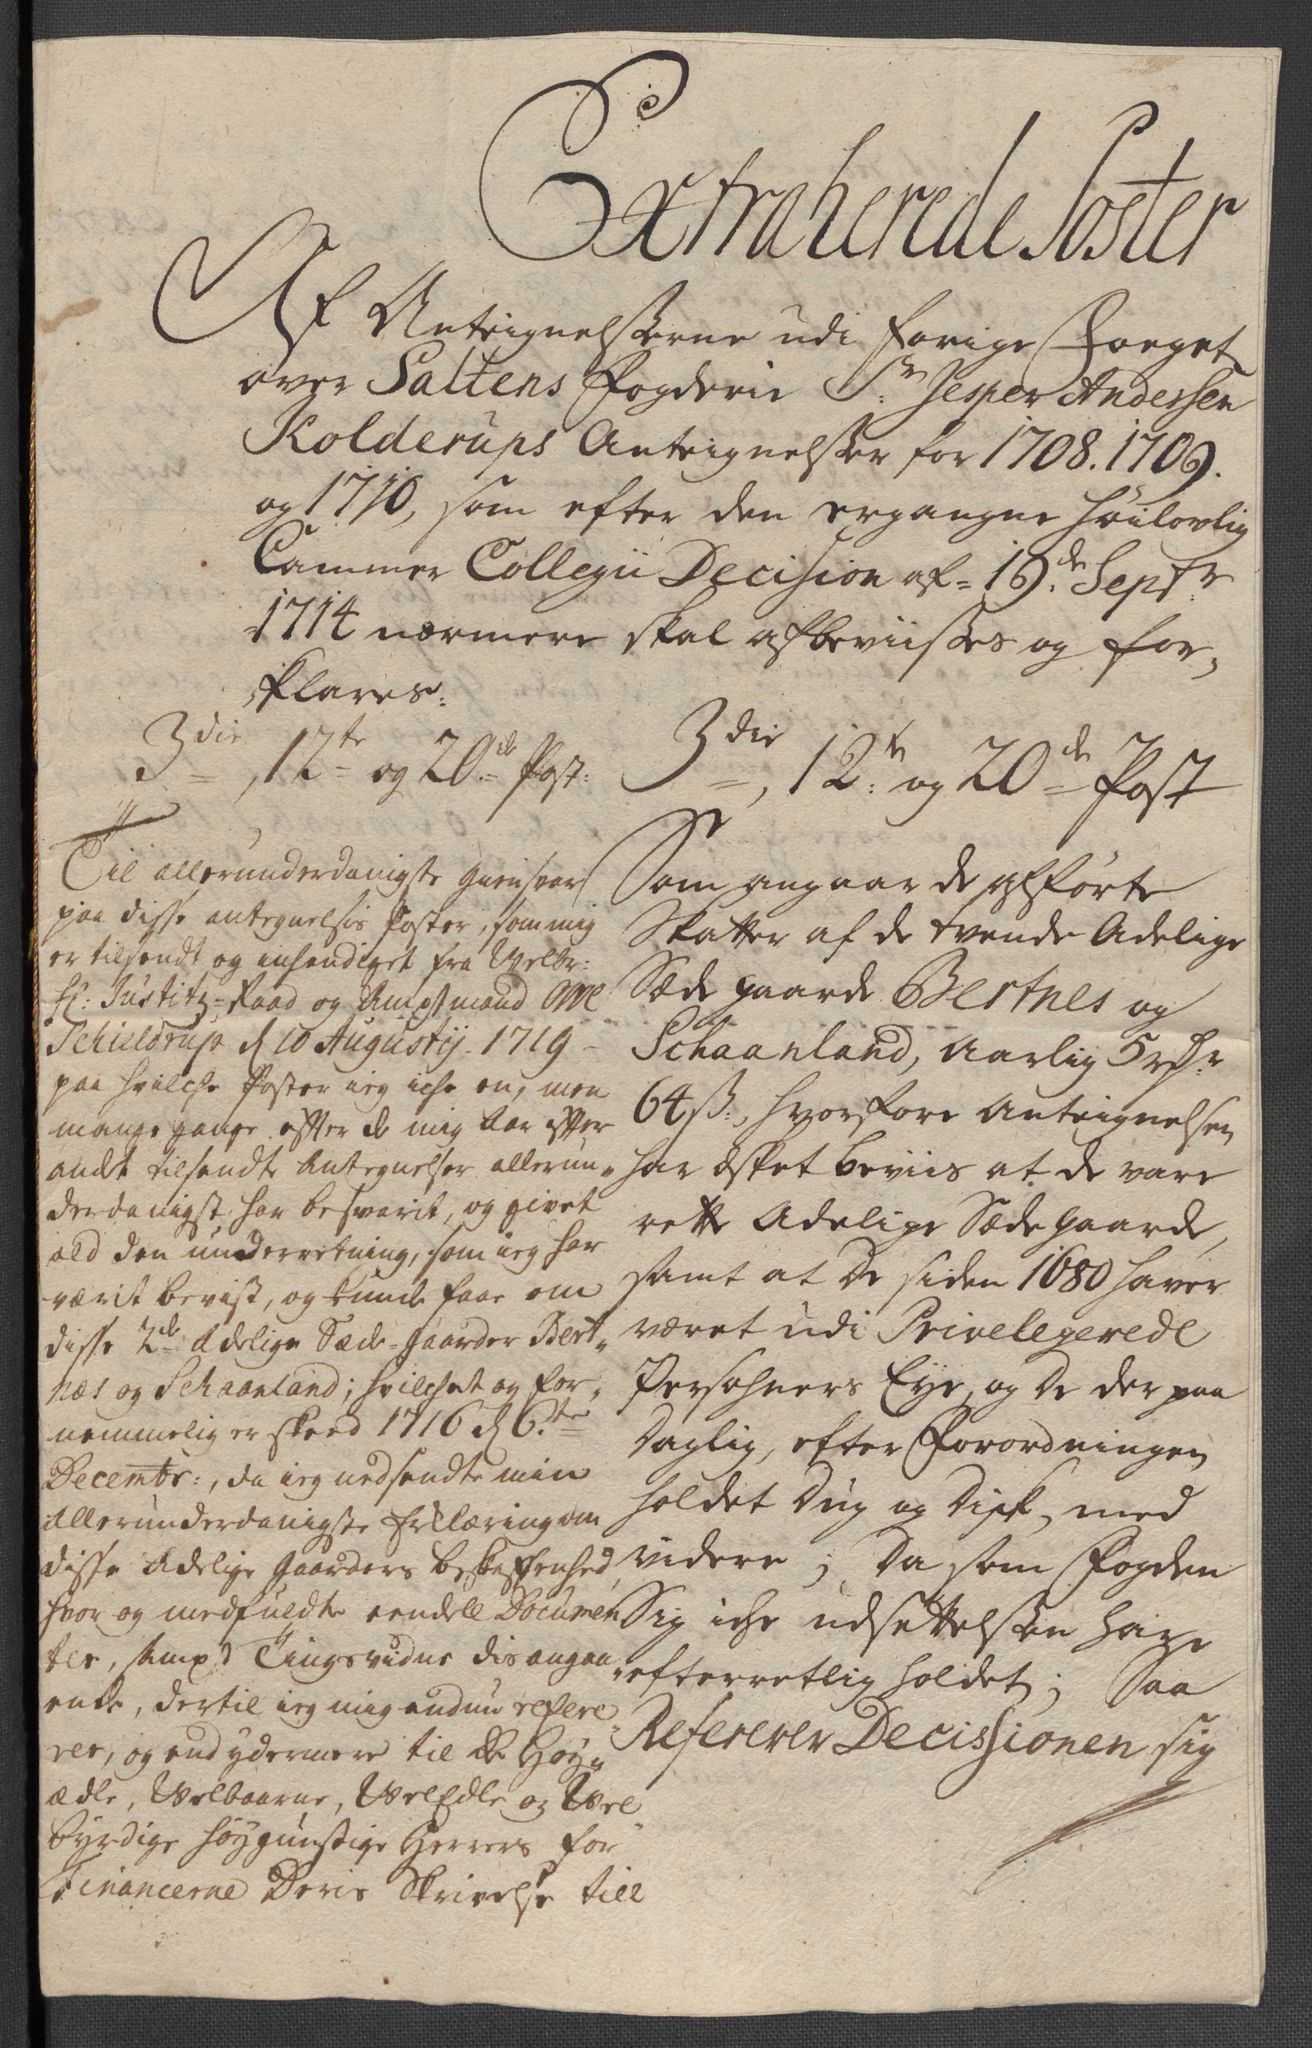 Extraherede Poster
Af Anteignelserne udi forige Foeget
over Saltens Fogderie Sr. Jesper Anderssen
Kolderups Anteignelser for 1708. 1709.
og 1710, som efter den ergangne höilovlig
Cammer Collegii Decision af 19de Septr
1714 nærmere skal afbeviisses og for„
klares.
3die, 12te og 20de Post:
Til allerunderdanigste giensvar
paa disse antegnelsis Poster, som mig
er tilsendt og inhendiget fra Welbr:
H: Justitz-Raad og Amptmand Ove
Schieldrup d 10 Augustij 1719 –
paa hvilche Poster ieg iche en, men
mange gange efter de mig aar efter
andet tilsendte Antegnelser allerun„
derdanigst har besvarit, og givet
ald den underretning, som ieg har
værit bevist, og kunde faae om
disse 2de Adelige Sæde-gaarder Bert„
næs og Schaanland; hvilchet og for„
nemmelig er skeed 1716 d 6te
Decembr:, da ieg nedsendte min
allerunderdanigste Erklæring om
disse Adelige Gaarders beskaffenhed,
hvor og medfuldte eendell Documen
ter, samt Tingsvidne disangaa„
ende, dertil ieg mig endnu refere„
rer, og end ydermere til De Höy„
ædle, Welbaarne, WelEdle og Wel
byrdige höygunstige Herrers for
Financerne Deris Skrivelse till
3die, 12te og 20de Post
Som angaar de afförte
Skatter af de tvende Adelige
Sæde gaarde Bertnes og
Schaanland, Aarlig 5 rdr
64 ß:, hvorfore Anteignelsen
har æsket beviis at de vare
rette Adelige Sæde gaarde,
samt at De siden 1680 haver
været udi Privelegerede
Persohners Eye, og De der paa
Daglig, efter Forordningen
holdet Dug og Disk, med
videre; Da som Fogden
Sig iche udsettelsen har
efterretlig holdet; Saa
Refererer Decissionen sig